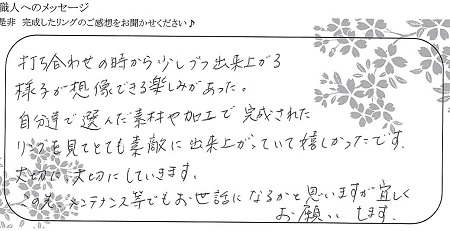 職人へのメッセージ
是非 完成したリングのご感想をお聞かせください♪
打ち合わせの時から少しづつ出来上がる
様子が想像できる楽しみがあった。
自分達で選んだ素材や加工で完成された
リングを見てとても素敵に出来上がっていて嬉しかったです.
大切に、大切にしていきます。
この先、メンテナンス等でもお世話になるかと思いますが宜しく
お願い します.